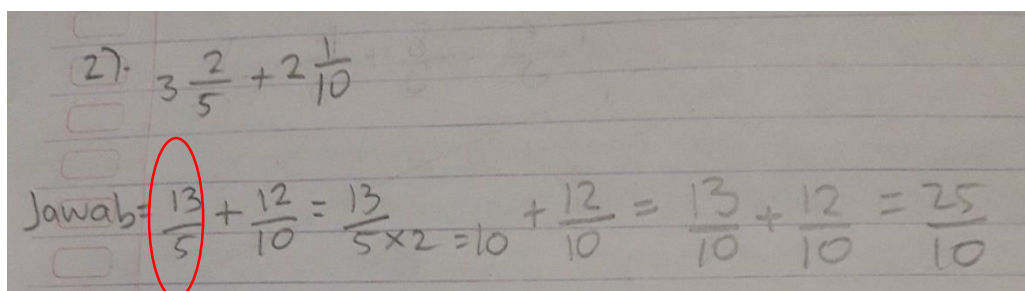 2). 3 2/5 + 2 1/10
Jawab = 13/5 + 12/10 = 13/5×2 = 10 + 12/10 = 13/10 + 12/10 = 25/10